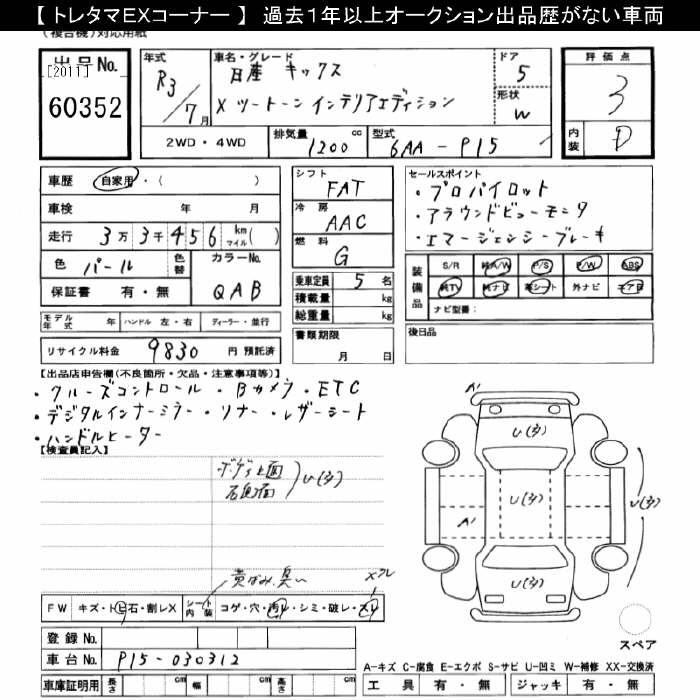 【 トレタマEXコーナー 】 過去1年以上オークション出品歴がない車両
(複合機)対応用紙
出品No.
[2011]
60352
年式 R3/7月
車名・グレード 日産 キックス
X ツートーン インテリアエディション
ドア 5
形状 W
評価点 3
内装 D
2WD・4WD 排気量 1200 cc 型式 6AA-P15
車歴 自家用・( )
車検 年 月
走行 3万3千456 km マイル( )
色 パール 色替 カラーNo. QAB
保証書 有・無
シフト FAT
冷房 AAC
燃料 G
乗車定員 5名
積載量 kg
総重量 kg
書類期限
月 日
セールスポイント
・プロパイロット
・アラウンドビューモニタ
・エマージェンシーブレーキ
装備品 S/R 純A/W P/S P/W ABS
純TV 純ナビ 革シート 外ナビ エアB
ナビ型番:
後日品
モデル年式 年 ハンドル 左・右 ディーラー・並行
リサイクル料金 9830 円 預託済
【出品店申告欄(不良箇所・欠品・注意事項等)】
・クルーズコントロール ・Bカメラ ・ETC
・デジタルインナーミラー ・ソナー ・レザーシート
・ハンドルヒーター
【検査員記入】
U(多)
黄ばみ 臭い
スレ
FW キズ・トビ石・割レX シート内装 コゲ・穴・汚レ・シミ・破レ・スレ
登録No.
車台No. P15-030312
車庫証明用 長さ cm 幅 cm 高さ cm
A'
U(多)
U(多)
U(多)
A'
U(多)
スペア
A-キズ C-腐食 E-エクボ S-サビ U-凹ミ W-補修 XX-交換済
工具 有・無 ジャッキ 有・無